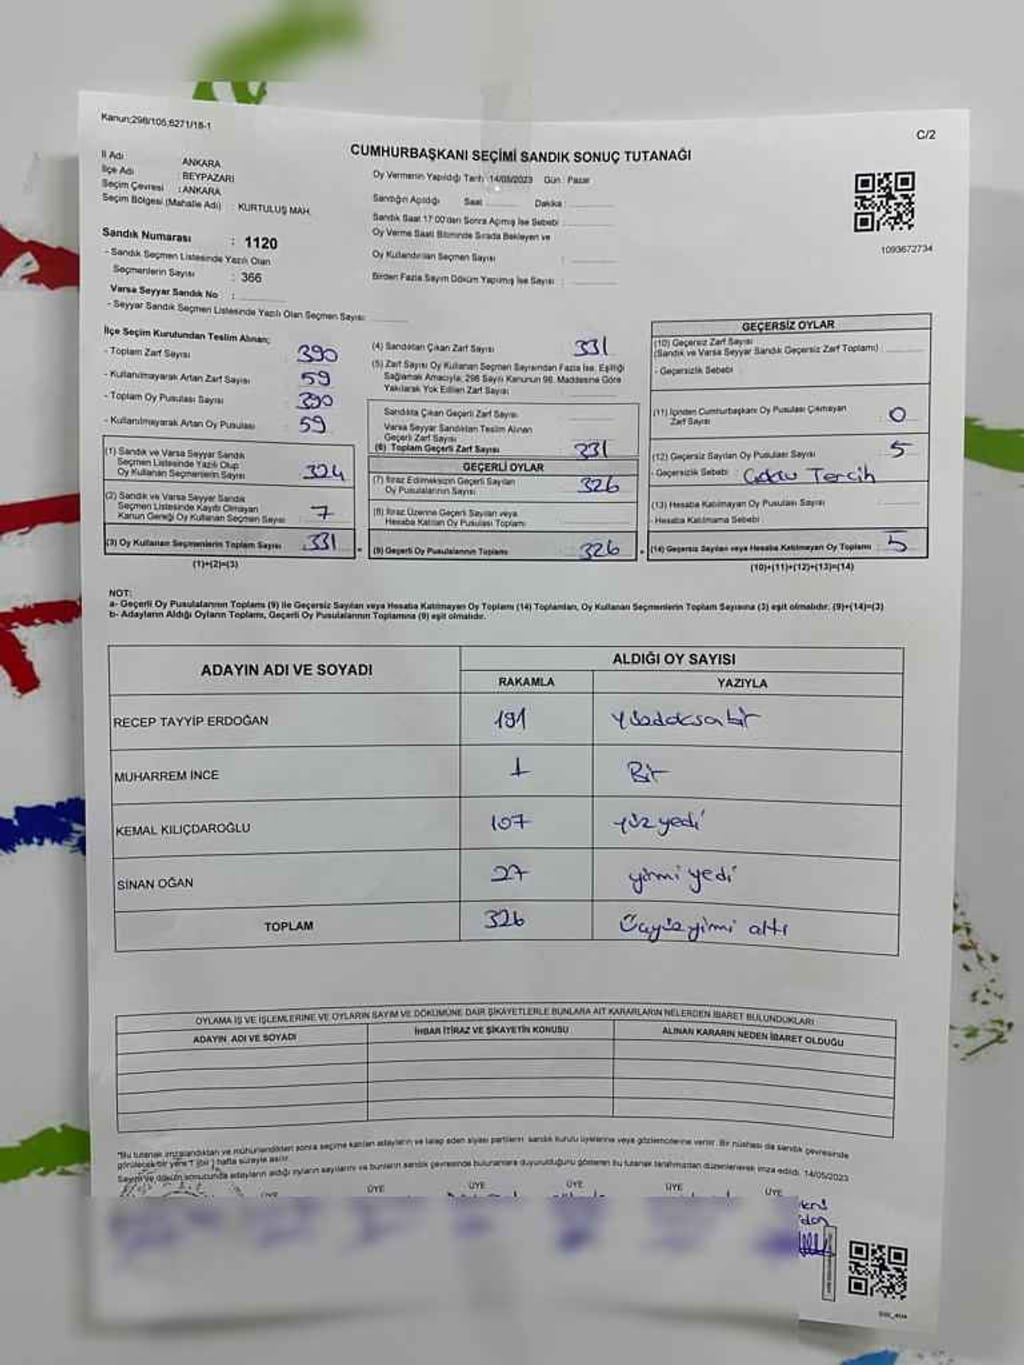 Kanun:298/105,6271/18-1
C/2
CUMHURBAŞKANI SEÇİMİ SANDIK SONUÇ TUTANAĞI
İl Adı ANKARA
İlçe Adı : BEYPAZARI
Seçim Çevresi : ANKARA
Seçim Bölgesi (Mahalle Adı) : KURTULUŞ MAH.
Oy Vermenin Yapıldığı Tarih :14/05/2023 Gün : Pazar
Sandığın Açıldığı Saat Dakika :
Sandık Saat 17:00'den Sonra Açılmış İse Sebebi :
Oy Verme Saati Bitiminde Sırada Bekleyen ve
Oy Kullandırılan Seçmen Sayısı :
Birden Fazla Sayım Döküm Yapılmış İse Sayısı :
1093672734
Sandık Numarası : 1120
- Sandık Seçmen Listesinde Yazılı Olan
Seçmenlerin Sayısı : 366
Varsa Seyyar Sandık No :
- Seyyar Sandık Seçmen Listesinde Yazılı Olan Seçmen Sayısı:
İlçe Seçim Kurulundan Teslim Alınan;
- Toplam Zarf Sayısı 390
- Kullanılmayarak Artan Zarf Sayısı 59
- Toplam Oy Pusulası Sayısı 390
- Kullanılmayarak Artan Oy Pusulası 59
(1) Sandık ve Varsa Seyyar Sandık
Seçmen Listesinde Yazılı Olup
Oy Kullanan Seçmenlerin Sayısı 324
(2) Sandık ve Varsa Seyyar Sandık
Seçmen Listesinde Kayıtlı Olmayan
Kanun Gereği Oy Kullanan Seçmen Sayısı 7
(3) Oy Kullanan Seçmenlerin Toplam Sayısı 331
(1)+(2)=(3)
(4) Sandıktan Çıkan Zarf Sayısı 331
(5) Zarf Sayısı Oy Kullanan Seçmen Sayısından Fazla İse, Eşitliği
Sağlamak Amacıyla, 298 Sayılı Kanunun 98. Maddesine Göre
Yakılarak Yok Edilen Zarf Sayısı
Sandıkta Çıkan Geçerli Zarf Sayısı
Varsa Seyyar Sandıktan Teslim Alınan
Geçerli Zarf Sayısı
(6) Toplam Geçerli Zarf Sayısı 331
GEÇERLİ OYLAR
(7) İtiraz Edilmeksizin Geçerli Sayılan
Oy Pusulalarının Sayısı 326
(8) İtiraz Üzerine Geçerli Sayılan veya
Hesaba Katılan Oy Pusulası Toplamı
(9) Geçerli Oy Pusulalarının Toplamı 326
GEÇERSİZ OYLAR
(10) Geçersiz Zarf Sayısı
(Sandık ve Varsa Seyyar Sandık Geçersiz Zarf Toplamı)
- Geçersizlik Sebebi :
(11) İçinden Cumhurbaşkanı Oy Pusulası Çıkmayan
Zarf Sayısı 0
(12) Geçersiz Sayılan Oy Pusulası Sayısı 5
- Geçersizlik Sebebi : Çoklu Tercih
(13) Hesaba Katılmayan Oy Pusulası Sayısı
- Hesaba Katılmama Sebebi
(14) Geçersiz Sayılan veya Hesaba Katılmayan Oy Toplamı 5
(10)+(11)+(12)+(13)=(14)
NOT:
a- Geçerli Oy Pusulalarının Toplamı (9) ile Geçersiz Sayılan veya Hesaba Katılmayan Oy Toplamı (14) Toplamları, Oy Kullanan Seçmenlerin Toplam Sayısına (3) eşit olmalıdır. (9)+(14)=(3)
b- Adayların Aldığı Oyların Toplamı, Geçerli Oy Pusulalarının Toplamına (9) eşit olmalıdır.
ADAYIN ADI VE SOYADI
ALDIĞI OY SAYISI
RAKAMLA YAZIYLA
RECEP TAYYİP ERDOĞAN 191 Yüzdoksabir
MUHARREM İNCE 1 Bir
KEMAL KILIÇDAROĞLU 107 yüz yedi
SİNAN OĞAN 27 yirmi yedi
TOPLAM 326 Üçyüzyirmi altı
OYLAMA İŞ VE İŞLEMLERİNE VE OYLARIN SAYIM VE DÖKÜMÜNE DAİR ŞİKAYETLERLE BUNLARA AİT KARARLARIN NELERDEN İBARET BULUNDUKLARI
ADAYIN ADI VE SOYADI İHBAR İTİRAZ VE ŞİKAYETİN KONUSU ALINAN KARARIN NEDEN İBARET OLDUĞU
*Bu tutanak imzalandıktan ve mühürlendikten sonra seçime katılan adayların ve talep eden siyasi partilerin sandık kurulu üyelerine veya gözlemcilerine verilir. Bir nüshası da sandık çevresinde
görülecek bir yere 1 (bir) hafta süreyle asılır.
Sayım ve döküm sonucunda adayların aldığı oyların sayılarını ve bunların sandık çevresinde bulunanlara duyurulduğunu gösteren bu tutanak tarafımızdan düzenlenerek imza edildi. 14/05/2023
ÜYE ÜYE ÜYE ÜYE ÜYE ÜYE